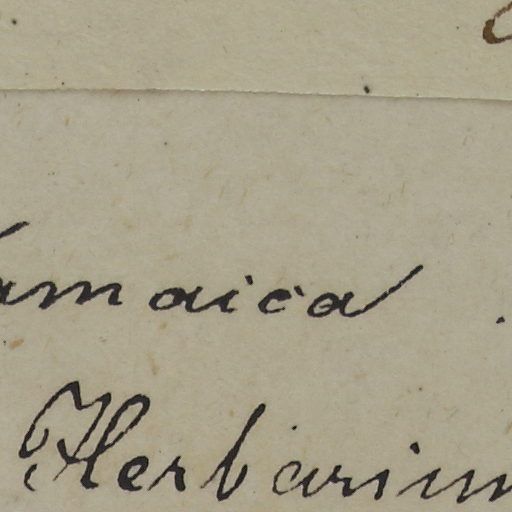 Jamaica
Herbarium